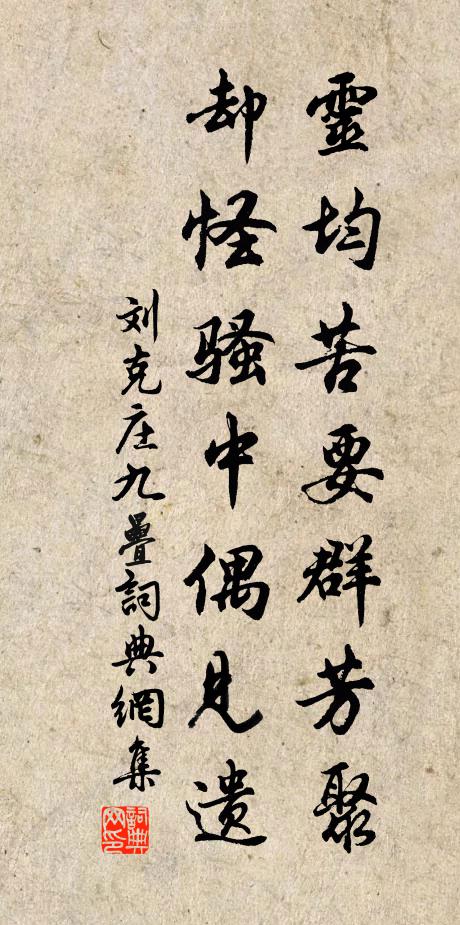 靈均苦要群芳聚
却怪骚中偶见遗
刘克庄九疊詞典網集
詞典网印